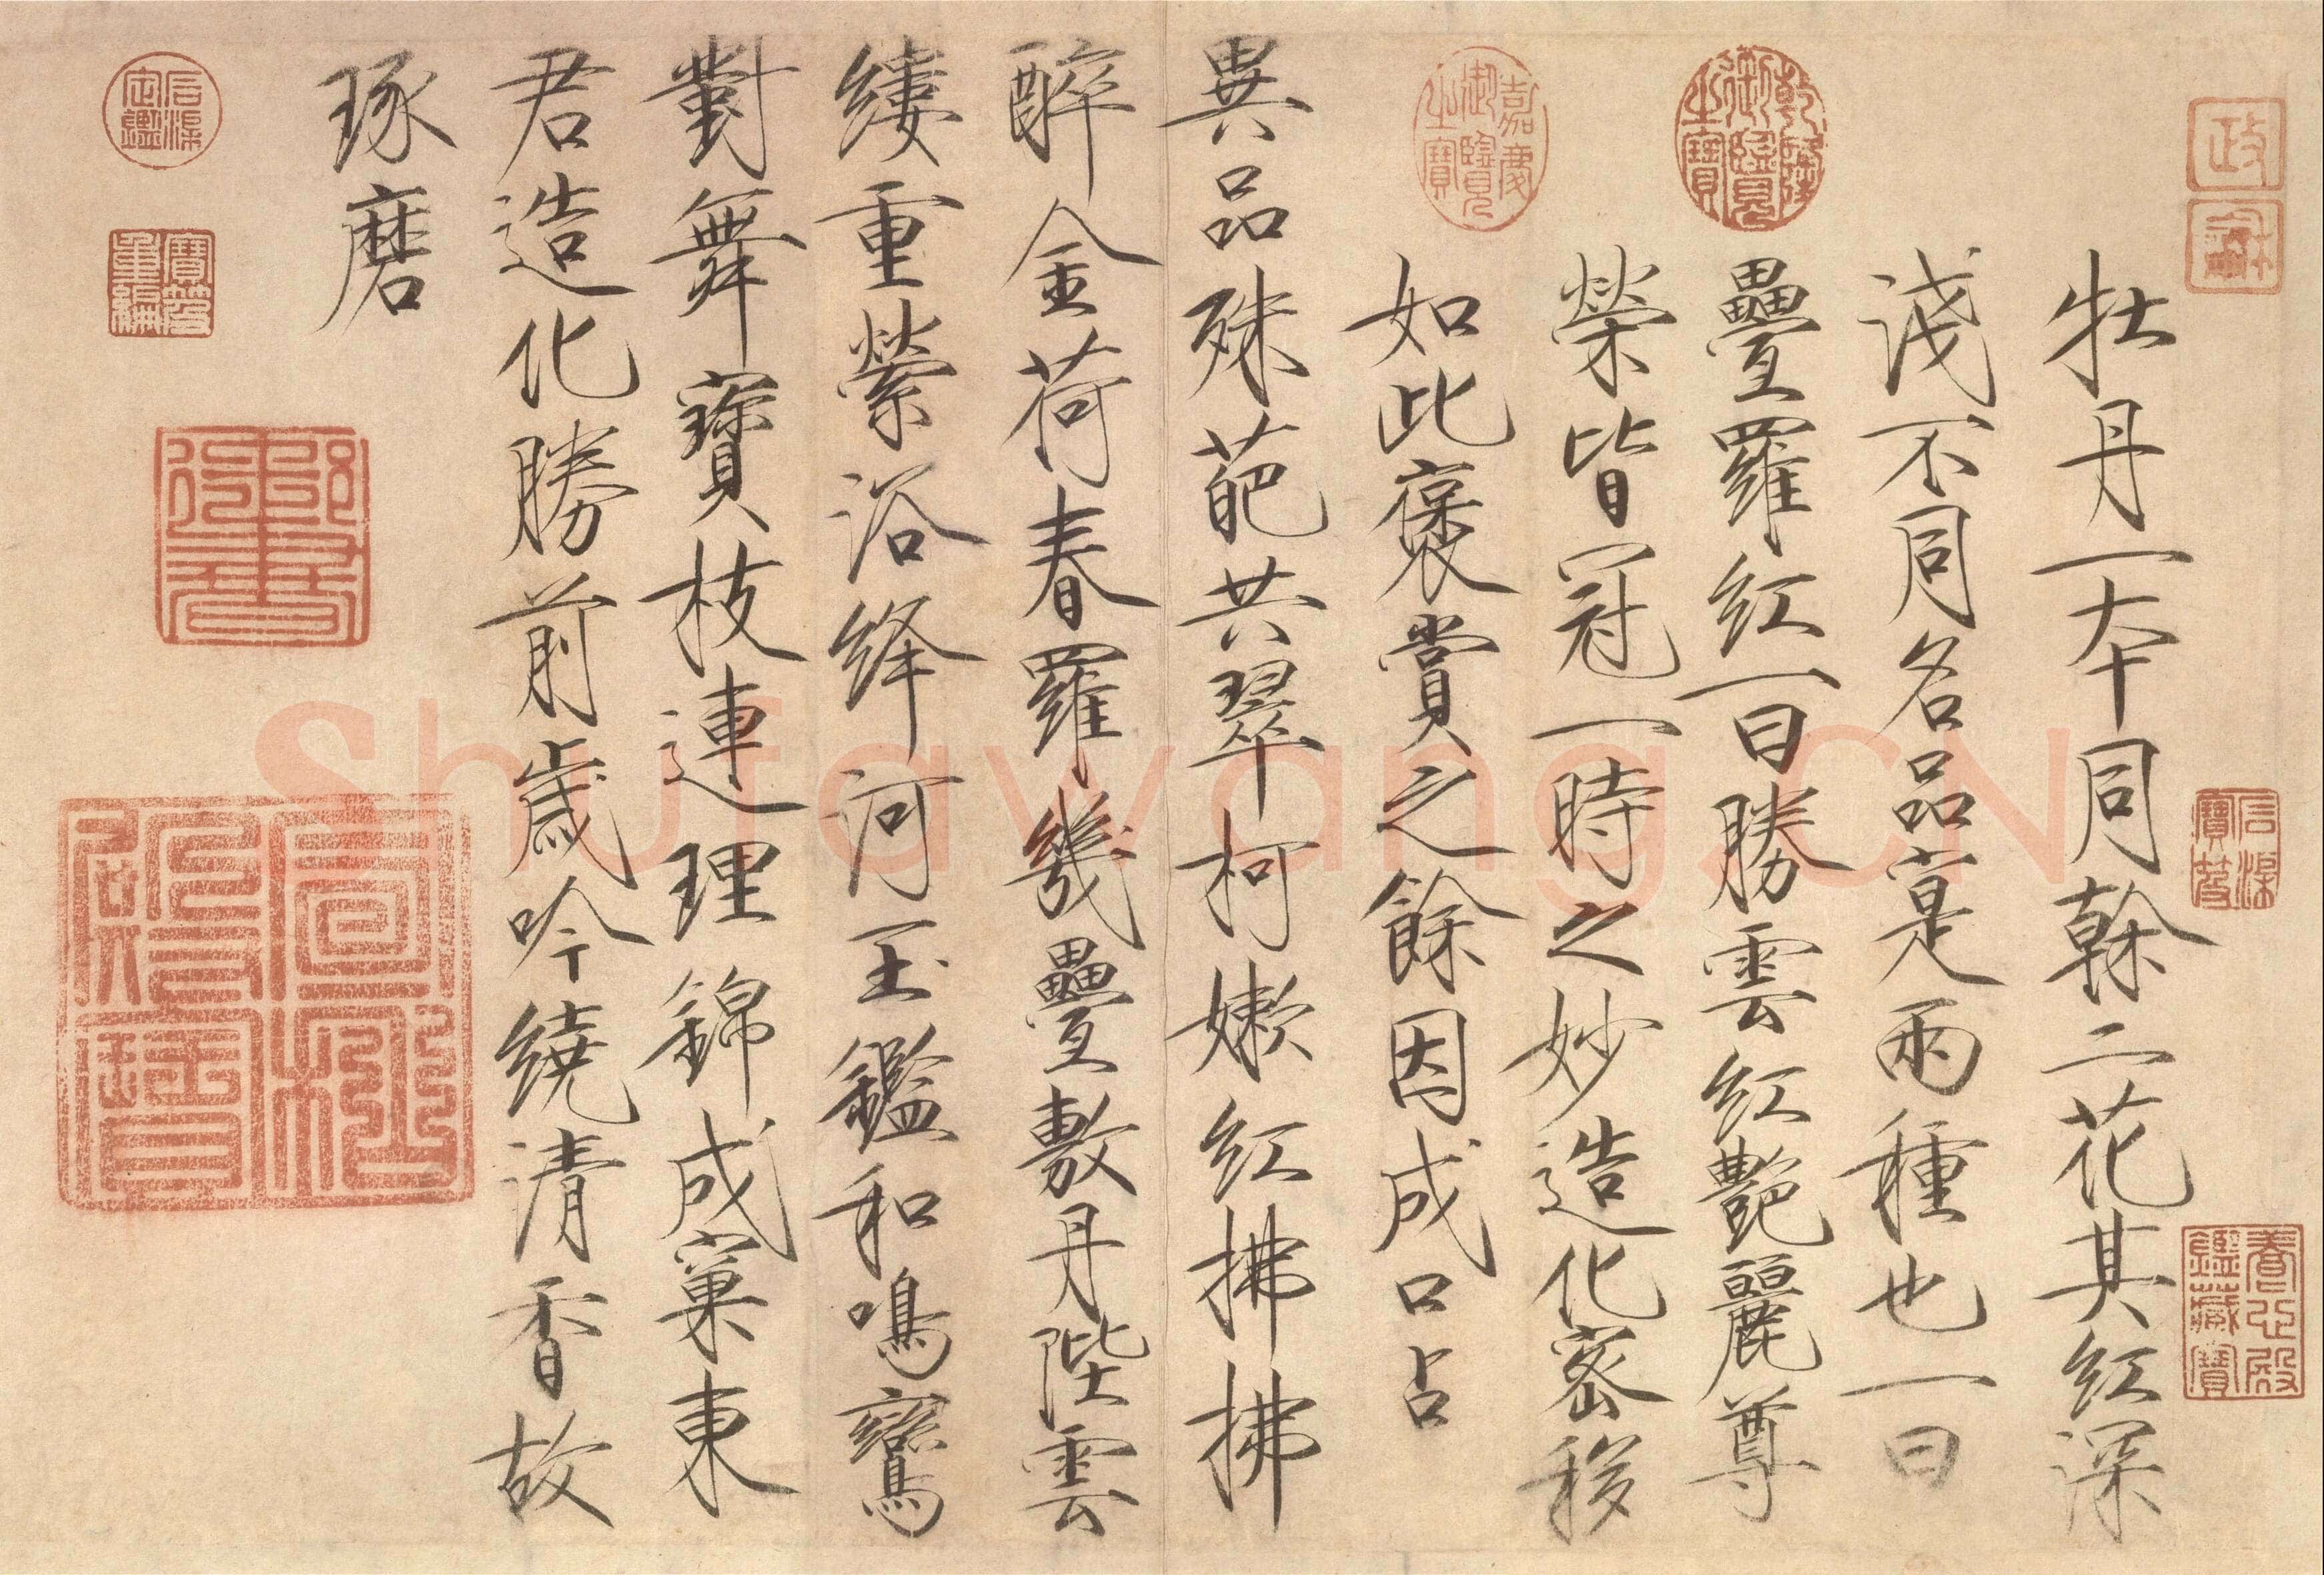 牡丹一本同榦二花其紅深
淺不同名品寔兩種也一曰
疊羅紅一曰勝雲紅艷麗尊
榮皆冠一時之妙造化密移
如此褒賞之餘因成口占
異品殊葩共翠柯嫩紅拂拂
醉金荷春羅幾疊敷丹陛雲
縷重縈浴絳河玉鑑和鳴鸞
對舞寶枝連理錦成窠東
君造化勝前歲吟繞清香故
琢磨
政
龢
乾隆御覽之寶
嘉慶御覽之寶
石渠寶笈
養心殿鑑藏寶
石渠定鑑
寶笈重編
Shufawang.CN